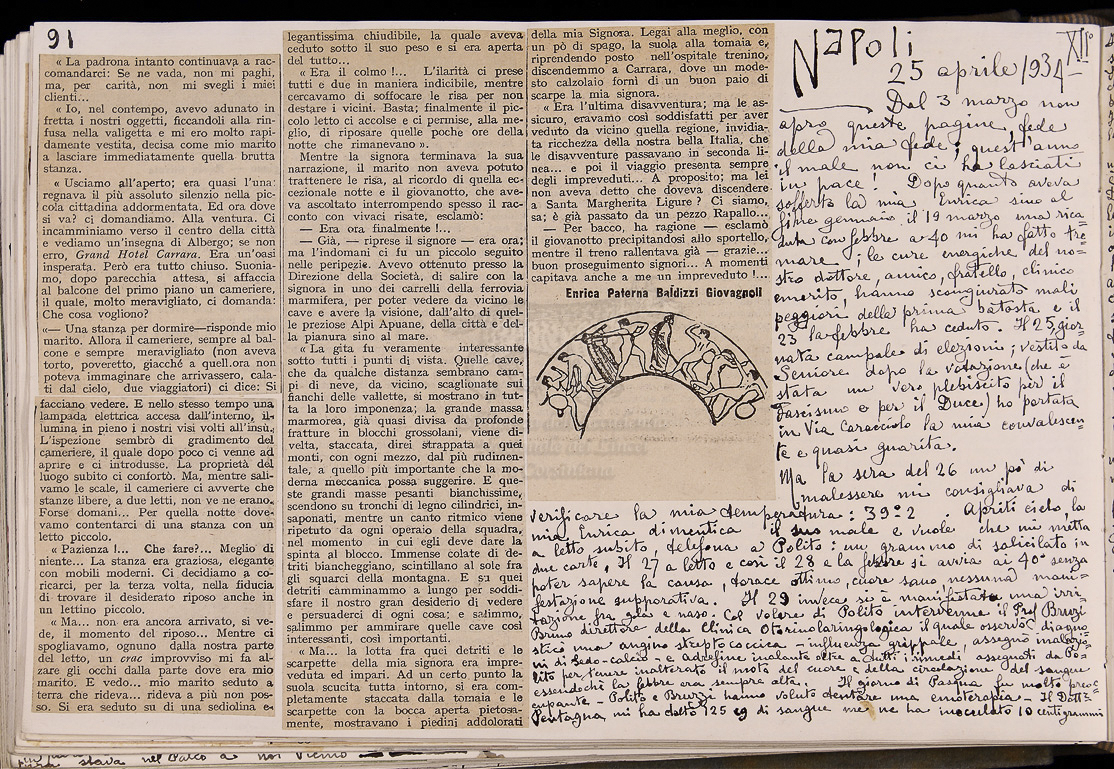 91
« La padrona intanto continuava a rac-
comandarci: Se ne vada, non mi paghi,
ma, per carità, non mi svegli i miei
clienti...
« Io, nel contempo, avevo adunato in
fretta i nostri oggetti, ficcandoli alla rin-
fusa nella valigetta e mi ero molto rapi-
damente vestita, decisa come mio marito
a lasciare immediatamente quella brutta
stanza.
« Usciamo all'aperto; era quasi l'una:
regnava il più assoluto silenzio nella pic-
cola cittadina addormentata. Ed ora dove
si va? ci domandiamo. Alla ventura. Ci
incamminiamo verso il centro della città
e vediamo un'insegna di Albergo; se non
erro, Grand Hotel Carrara. Era un'oasi
insperata. Però era tutto chiuso. Suonia-
mo, dopo parecchia attesa, si affaccia
al balcone del primo piano un cameriere,
il quale, molto meravigliato, ci domanda:
Che cosa vogliono?
«— Una stanza per dormire—risponde mio
marito. Allora il cameriere, sempre al bal-
cone e sempre meravigliato (non aveva
torto, poveretto, giacché a quell.ora non
poteva immaginare che arrivassero, cala-
ti dal cielo, due viaggiatori) ci dice: Si
facciano vedere. E nello stesso tempo una
lampada elettrica accesa dall'interno, il-
lumina in pieno i nostri visi volti all'insù.
L'ispezione sembrò di gradimento del
cameriere, il quale dopo poco ci venne ad
aprire e ci introdusse. La proprietà del
luogo subito ci confortò. Ma, mentre sali-
vamo le scale, il cameriere ci avverte che
stanze libere, a due letti, non ve ne erano.
Forse domani... Per quella notte dove-
vamo contentarci di una stanza con un
letto piccolo.
« Pazienza !... Che fare?... Meglio di
niente... La stanza era graziosa, elegante
con mobili moderni. Ci decidiamo a co-
ricarci, per la terza volta, nella fiducia
di trovare il desiderato riposo anche in
un lettino piccolo.
« Ma... non era ancora arrivato, si ve-
de, il momento del riposo... Mentre ci
spogliavamo, ognuno dalla nostra parte
del letto, un crac improvviso mi fa al-
zare gli occhi dalla parte dove era mio
marito. E vedo... mio marito seduto a
terra che rideva... rideva a più non pos-
so. Si era seduto su di una sediolina e-
legantissima chiudibile, la quale aveva
ceduto sotto il suo peso e si era aperta
del tutto...
« Era il colmo !... L'ilarità ci prese
tutti e due in maniera indicibile, mentre
cercavamo di soffocare le risa per non
destare i vicini. Basta; finalmente il pic-
colo letto ci accolse e ci permise, alla me-
glio, di riposare quelle poche ore della
notte che rimanevano ».
Mentre la signora terminava la sua
narrazione, il marito non aveva potuto
trattenere le risa, al ricordo di quella ec-
cezionale notte e il giovanotto, che ave-
va ascoltato interrompendo spesso il rac-
conto con vivaci risate, esclamò:
— Era ora finalmente !...
— Già, — riprese il signore — era ora;
ma l'indomani ci fu un piccolo seguito
nelle peripezie. Avevo ottenuto presso la
Direzione della Società, di salire con la
signora in uno dei carrelli della ferrovia
marmifera, per poter vedere da vicino le
cave e avere la visione, dall'alto di quel-
le preziose Alpi Apuane, della città e del-
la pianura sino al mare.
« La gita fu veramente interessante
sotto tutti i punti di vista. Quelle cave,
che da qualche distanza sembrano cam-
pi di neve, da vicino, scaglionate sui
fianchi delle vallette, si mostrano in tut-
ta la loro imponenza; la grande massa
marmorea, già quasi divisa da profonde
fratture in blocchi grossolani, viene di-
velta, staccata, direi strappata a quei
monti, con ogni mezzo, dal più rudimen-
tale, a quello più importante che la mo-
derna meccanica possa suggerire. E que-
ste grandi masse pesanti bianchissime,
scendono su tronchi di legno cilindrici, in-
saponati, mentre un canto ritmico viene
ripetuto da ogni operaio della squadra,
nel momento in cui egli deve dare la
spinta al blocco. Immense colate di de-
triti biancheggiano, scintillano al sole fra
gli squarci della montagna. E su quei
detriti camminammo a lungo per soddi-
sfare il nostro gran desiderio di vedere
e persuaderci di ogni cosa; e salimmo,
salimmo per ammirare quelle cave così
interessanti, così importanti.
« Ma... la lotta fra quei detriti e le
scarpette della mia signora era impre-
veduta ed impari. Ad un certo punto la
suola scucita tutta intorno, si era com-
pletamente staccata dalla tomaia e le
scarpette con la bocca aperta pietosa-
mente, mostravano i piedini addolorati
della mia Signora. Legai alla meglio, con
un pò di spago, la suola alla tomaia e,
riprendendo posto nell'ospitale trenino,
discendemmo a Carrara, dove un mode-
sto calzolaio fornì di un buon paio di
scarpe la mia signora.
« Era l'ultima disavventura; ma le as-
sicuro, eravamo così soddisfatti per aver
veduto da vicino quella regione, invidia-
ta ricchezza della nostra bella Italia, che
le disavventure passavano in seconda li-
nea... e poi il viaggio presenta sempre
degli imprevedutì... A proposito; ma lei
non aveva detto che doveva discendere
a Santa Margherita Ligure ? Ci siamo,
sa; è già passato da un pezzo Rapallo...
— Per bacco, ha ragione — esclamò
il giovanotto precipitandosi allo sportello,
mentre il treno rallentava già — grazie...
buon proseguimento signori... A momenti
capitava anche a me un impreveduto !...
Enrica Paterna Baldizzi Giovagnoli
Napoli XII°
25 aprile 1934 -
Dal 3 marzo non
apro queste pagine, fede
della mia fede; quest'anno
il male, non ci ha lasciati
in pace! Dopo quanto aveva
sofferto la mia Enrica sino al
fine gennaio, il 19 marzo una rica
duta con febbre a 40 mi ha fatto tre
mare; le cure energiche del no-
stro dottore, amico, fratello, clinico
emerito, hanno scongiurato mali
peggiori della prima batosta e il
23 la febbre ha ceduto. Il 25 gior
nata campale di elezioni; vestito da
Seniore dopo la votazione (che è
stata un vero plebiscito per il
fascismo e per il Duce) ho portata
in Via Caracciolo la mia convalescen-
te e quasi guarita.
Ma la sera del 26 un pò di
malessere mi consigliava di
verificare la mia temperatura: 39°2. Apriti cielo, la
mia Enrica dimentica il suo male e vuole che mi metta
a letto subito, telefona a Polito: un grammo di salicilato in
due carte, Il 27 a letto e così il 28 e la febbre si avvia ai 40° senza
poter sapere la causa, torace ottimo, cuore sano nessuna mani-
festazione supporativa. Il 29 invece si è manifestata una irri-
tazione fra gola e naso. Col volere di Polito interviene il Prof Bruzzi
Bruno direttore della Clinica Otorinolaringologica il quale osservò, diagno
sticò una angina streptococcica - influenza grippale, assegnò inalazio-
ni di Sedo-calcio - e adrefina inalante oltre a tutti i rimedi assegnati da Po-
lito per tenere inalterato il moto del cuore, della circolazione del sangue
essendochè la febbre era sempre alta. Il giorno di Pasqua fu molto preoc-
cupante - Polito e Bruzzi hanno voluto tentare una emoterapia - Il Dott.
Pentagna mi ha tolto 125 cg di sangue me ne ha inoculato 10 centigrammi
stava nel Parco a noi vicino